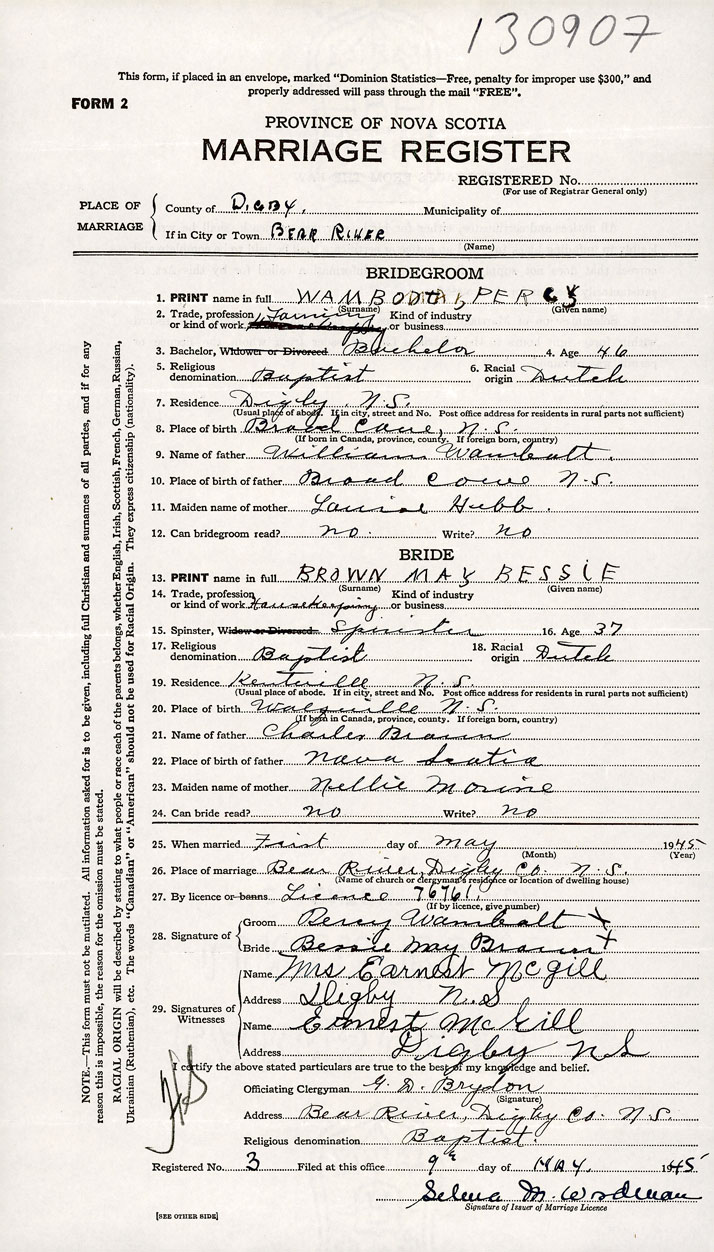 130907
This form, if placed in an envelope, marked "Dominion Statistics—Free, penalty for improper use $300," and
properly addressed will pass through the mail "FREE".
FORM 2
PROVINCE OF NOVA SCOTIA
MARRIAGE REGISTER
REGISTERED No.
(For use of Registrar General only)
PLACE OF MARRIAGE
County of DIGBY, Municipality of
If in City or Town BEAR RIVER
(Name)
BRIDEGROOM
1. PRINT name in full WAMBOLT, PERCY
(Surname) (Given name)
2. Trade, profession or kind of work Farming Kind of industry or business
3. Bachelor, Widower or Divorced Bachelor 4. Age 46
5. Religious denomination Baptist 6. Racial origin Dutch
7. Residence Digby N.S.
(Usual place of abode. If in city, street and No. Post office address for residents in rural parts not sufficient)
8. Place of birth Broad Cove, N.S.
(If born in Canada, province, county. If foreign born, country)
9. Name of father William Wambolt.
10. Place of birth of father Broad Cove N.S.
11. Maiden name of mother Hubb.
12. Can bridegroom read? no. Write? no
BRIDE
13. PRINT name in full BROWN MAY BESSIE
(Surname) (Given name)
14. Trade, profession or kind of work Housekeeping Kind of industry or business
15. Spinster, Widow or Divorced Spinster 16. Age 37
17. Religious denomination Baptist 18. Racial origin Dutch
19. Residence Kentville N.S.
(Usual place of abode. If in city, street and No. Post office address for residents in rural parts not sufficient)
20. Place of birth N.S.
(If born in Canada, province, county. If foreign born, country)
21. Name of father Charles Brown
22. Place of birth of father Nova Scotia
23. Maiden name of mother Nellie Morine
24. Can bride read? no Write? no
25. When married First day of May 1945
(Month) (Year)
26. Place of marriage Bear River, Digby Co. N.S.
(Name of church or clergyman's residence or location of dwelling house)
27. By licence or banns Licence 76761.
(If by licence, give number)
28. Signature of
Groom Percy Wambolt X
Bride Bessie May Brown X
29. Signatures of Witnesses
Name Mrs Earnest McGill
Address Digby N.S
Name Ernest McGill
Address Digby NS
I certify the above stated particulars are true to the best of my knowledge and belief.
Officiating Clergyman G. D. Brydon
(Signature)
Address Bear River, Digby Co. N.S.
Religious denomination Baptist.
Registered No. 3 Filed at this office 9th day of MAY. 1945
Selma M. Woodman
Signature of Issuer of Marriage Licence
[SEE OTHER SIDE]
NOTE.—This form must not be mutilated. All information asked for is to be given, including full Christian and surnames of all parties, and if for any
reason this is impossible, the reason for the omission must be stated.
RACIAL ORIGIN will be described by stating to what people or race each of the parents belongs, whether English, Irish, Scottish, French, German, Russian,
Ukrainian (Ruthenian), etc. The words "Canadian" or "American" should not be used for Racial Origin. They express citizenship (nationality).